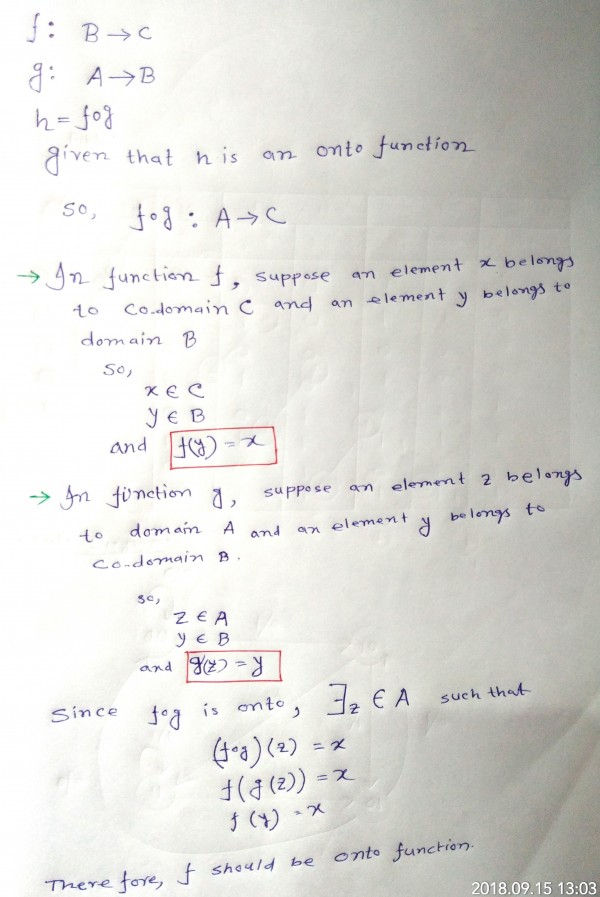 f: B→C
g: A→B
h = fog
given that h is an onto function
so, fog : A→C
→ In function f, suppose an element x belongs
to co-domain C and an element y belongs to
domain B
so,
x ∈ C
y ∈ B
and f(y) = x
→ In function g, suppose an element z belongs
to domain A and an element y belongs to
co-domain B.
so,
z ∈ A
y ∈ B
and g(z) = y
Since fog is onto, ∃z ∈ A such that
(fog)(z) = x
f(g(z)) = x
f(y) = x
Therefore, f should be onto function.
2018.09.15 13:03